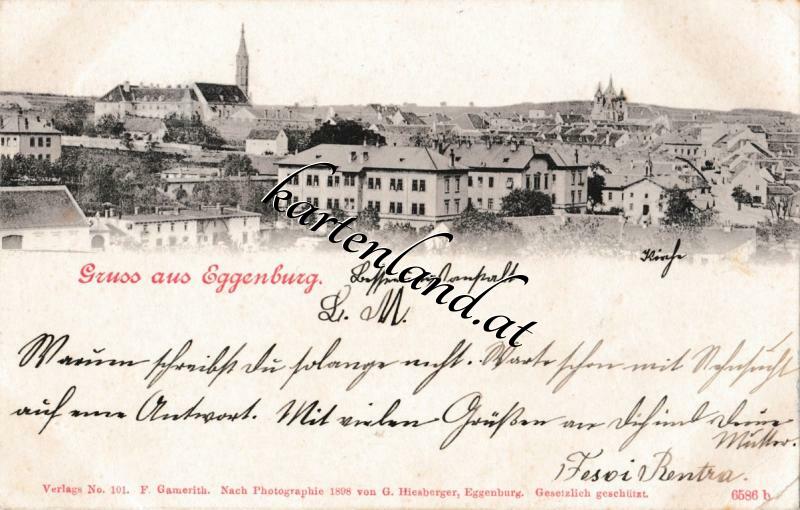 kartenland.at
Gruss aus Eggenburg.
Kirche
L. M.
Warum schreibst Du solange nicht. Warte schon mit Sehnsucht
auf eine Antwort. Mit vielen Grüßen an Dich und Deine
Mutter.
Verlags No. 101. F. Gamerith. Nach Photographie 1898 von G. Hiesberger, Eggenburg. Gesetzlich geschützt.
6586 b